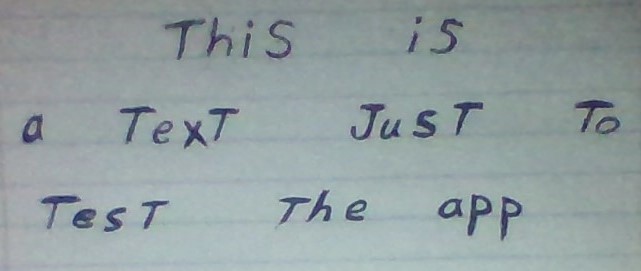 ThiS iS
a TexT JusT To
TesT The app